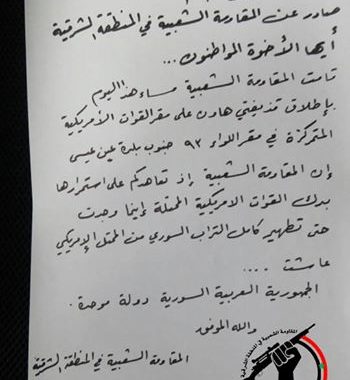 صادر عن المقاومة الشعبية في المنطقة الشرقية
أيها الأخوة المواطنون...
قامت المقاومة الشعبية مساء هذا اليوم
بإطلاق قذيفتي هاون على مقر القوات الأمريكية
المتمركزة في مقر اللواء ٩٣ جنوب بلدة عين عيسى
إن المقاومة الشعبية إذ تعاهدكم على استمرارها
بدك القوات الامريكية المحتلة إينما وجدت
حتى تطهير كامل التراب السوري من المحتل الإمريكي
عاشت ....
الجمهورية العربية السورية دولة موحدة .
والله الموفق
المقاومة الشعبية في المنطقة الشرقية
المقاومة الشعبية في المنطقة الشرقية